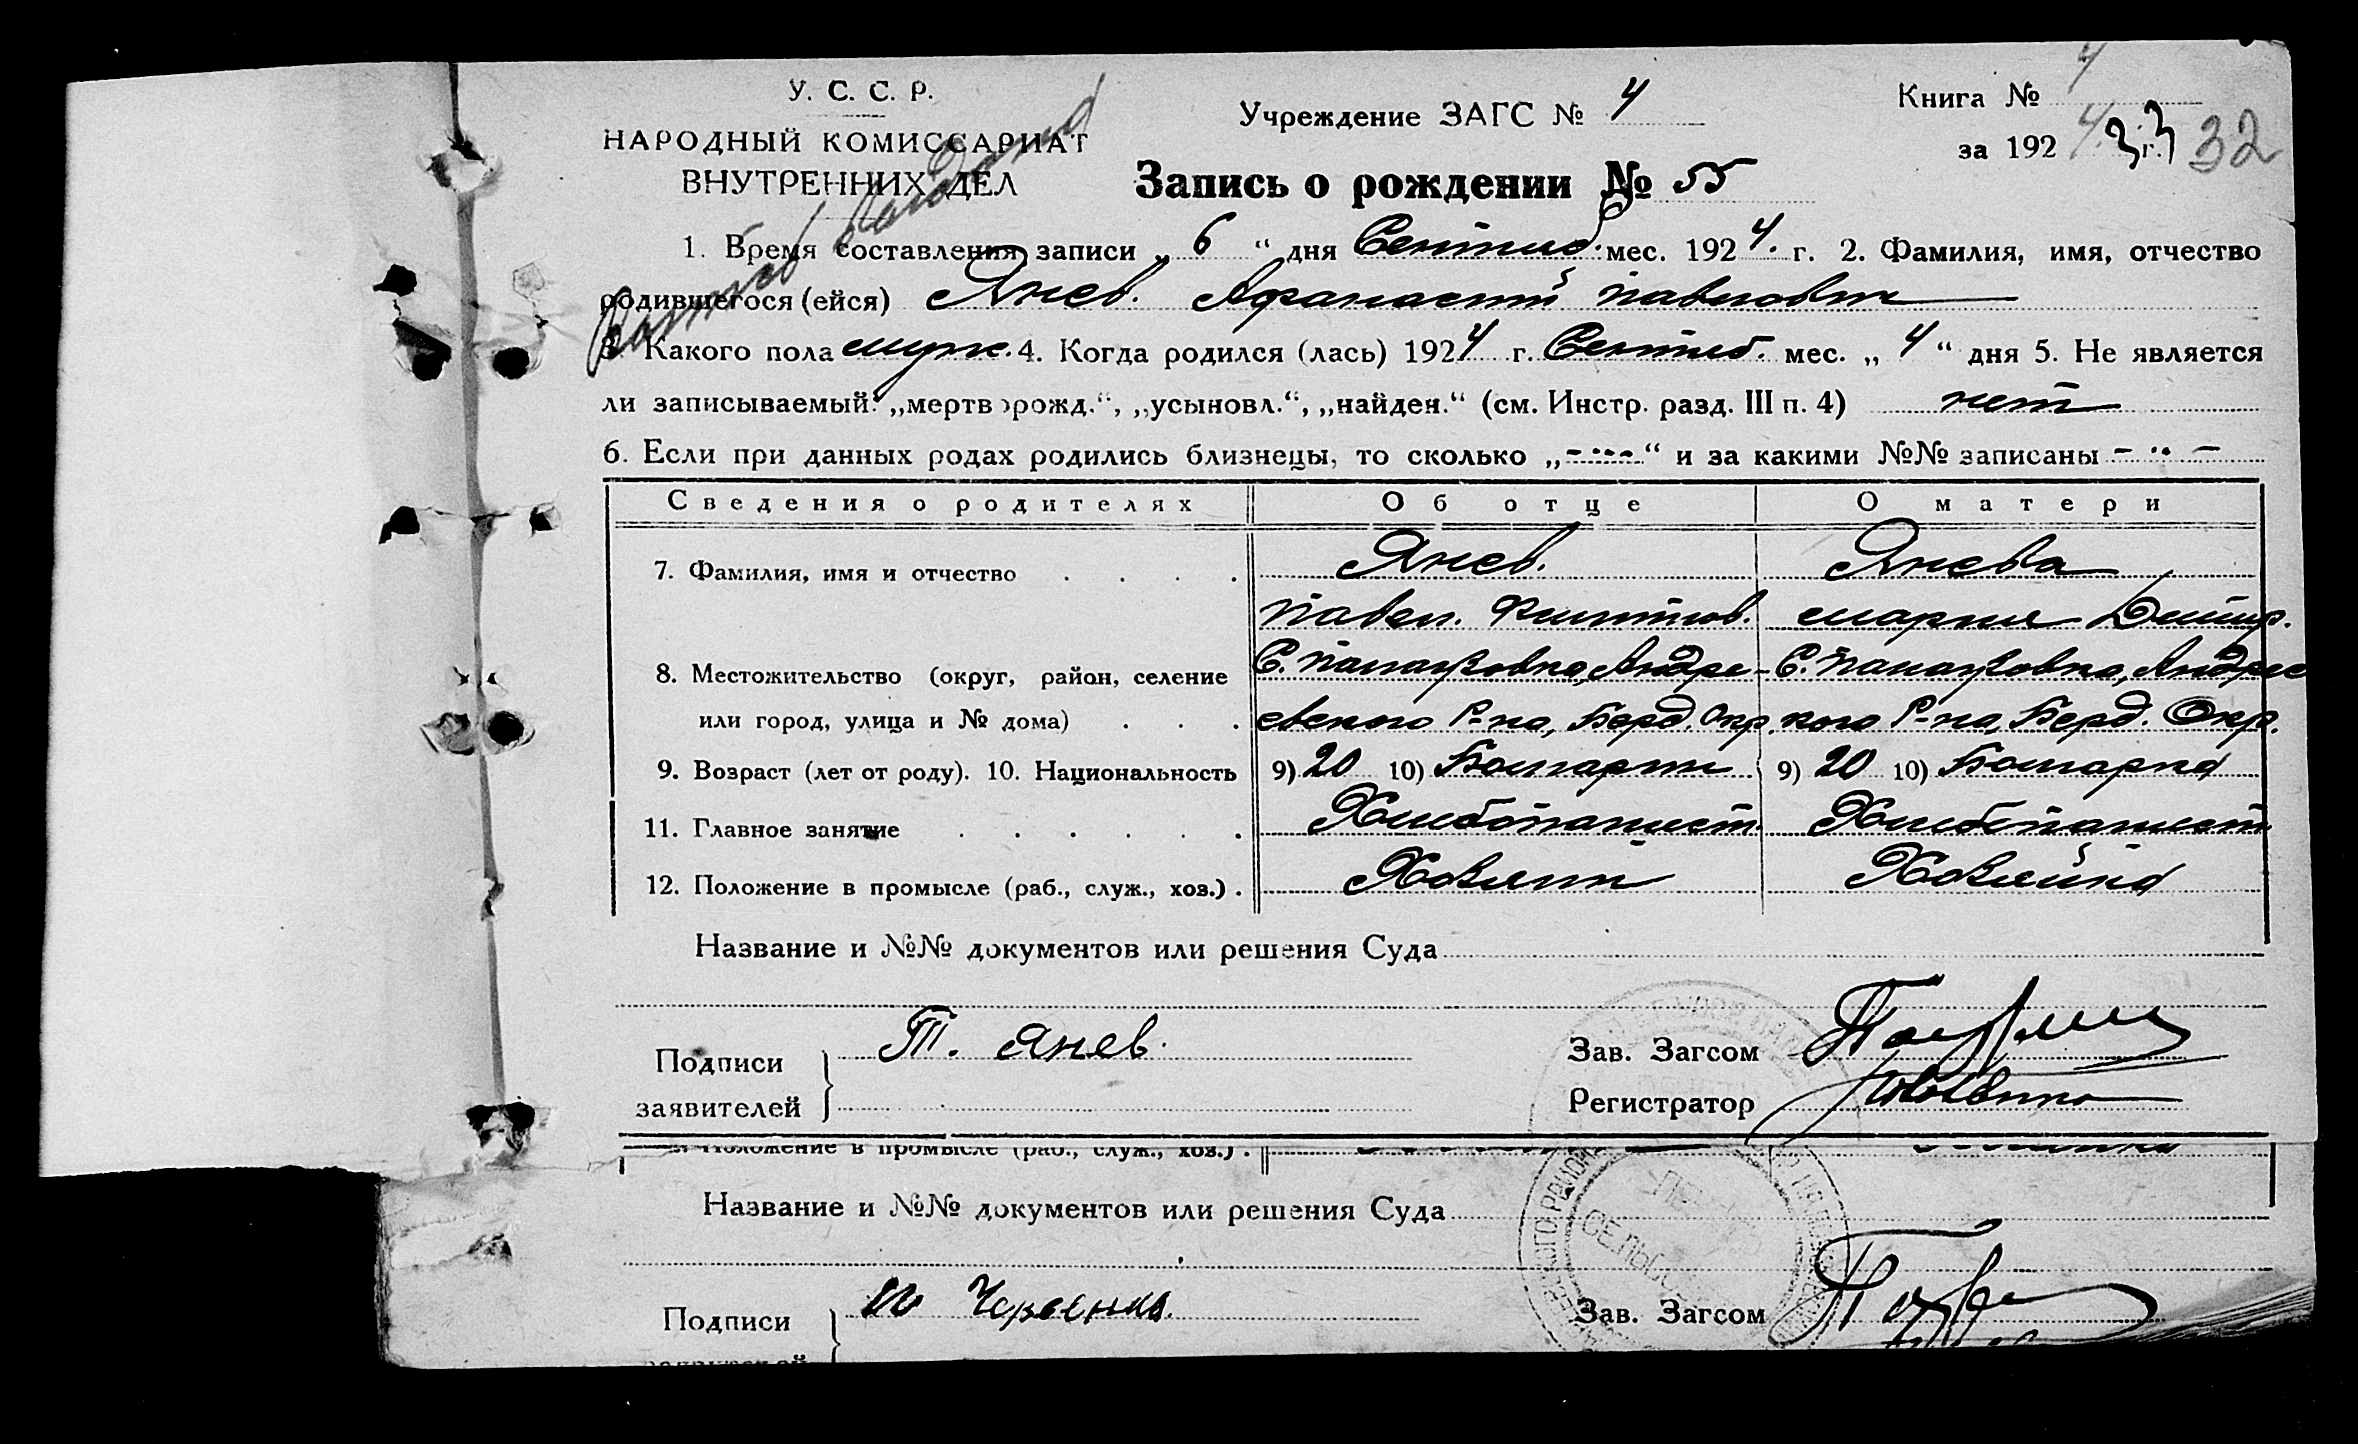 У. С. С. Р.
НАРОДНЫЙ КОМИССАРИАТ
ВНУТРЕННИХ ДЕЛ
Учреждение ЗАГС № 4
Книга № 4
за 1924 г. 33 32
Запись о рождении № 55
1. Время составления записи „ 6 “ дня Сентяб. мес. 1924. г. 2. Фамилия, имя, отчество
родившегося (ейся) Янев. Афанасий Павлович
3. Какого пола муж. 4. Когда родился (лась) 1924 г. Сентяб. мес. „ 4 “ дня 5. Не является
ли записываемый: „мертворожд.“, „усыновл.“, „найден.“ (см. Инстр. разд. III п. 4) нет
6. Если при данных родах родились близнецы, то сколько „-..-“ и за какими №№ записаны - .. -
Сведения о родителях Об отце О матери
7. Фамилия, имя и отчество . . . . Янев. Янева
Павел. Филипов. Мария Дмитр.
8. Местожительство (округ, район, селение С. Андре- С. Андреевс
или город, улица и № дома) . . . евского Р-на, Берд. Окр. кого Р-на, Берд. Окр.
9. Возраст (лет от роду). 10. Национальность 9) 20 10) Болгарин 9) 20 10) Болгарка
11. Главное занятие . . . . . . Хлебопашест. Хлебопашест
12. Положение в промысле (раб., служ., хоз.) . Хозяин Хозяйка
Название и №№ документов или решения Суда
Подписи Т. Янев. Зав. Загсом
заявителей Регистратор
Положение в промысле (раб., служ., хоз.) .
Название и №№ документов или решения Суда
Подписи Зав. Загсом